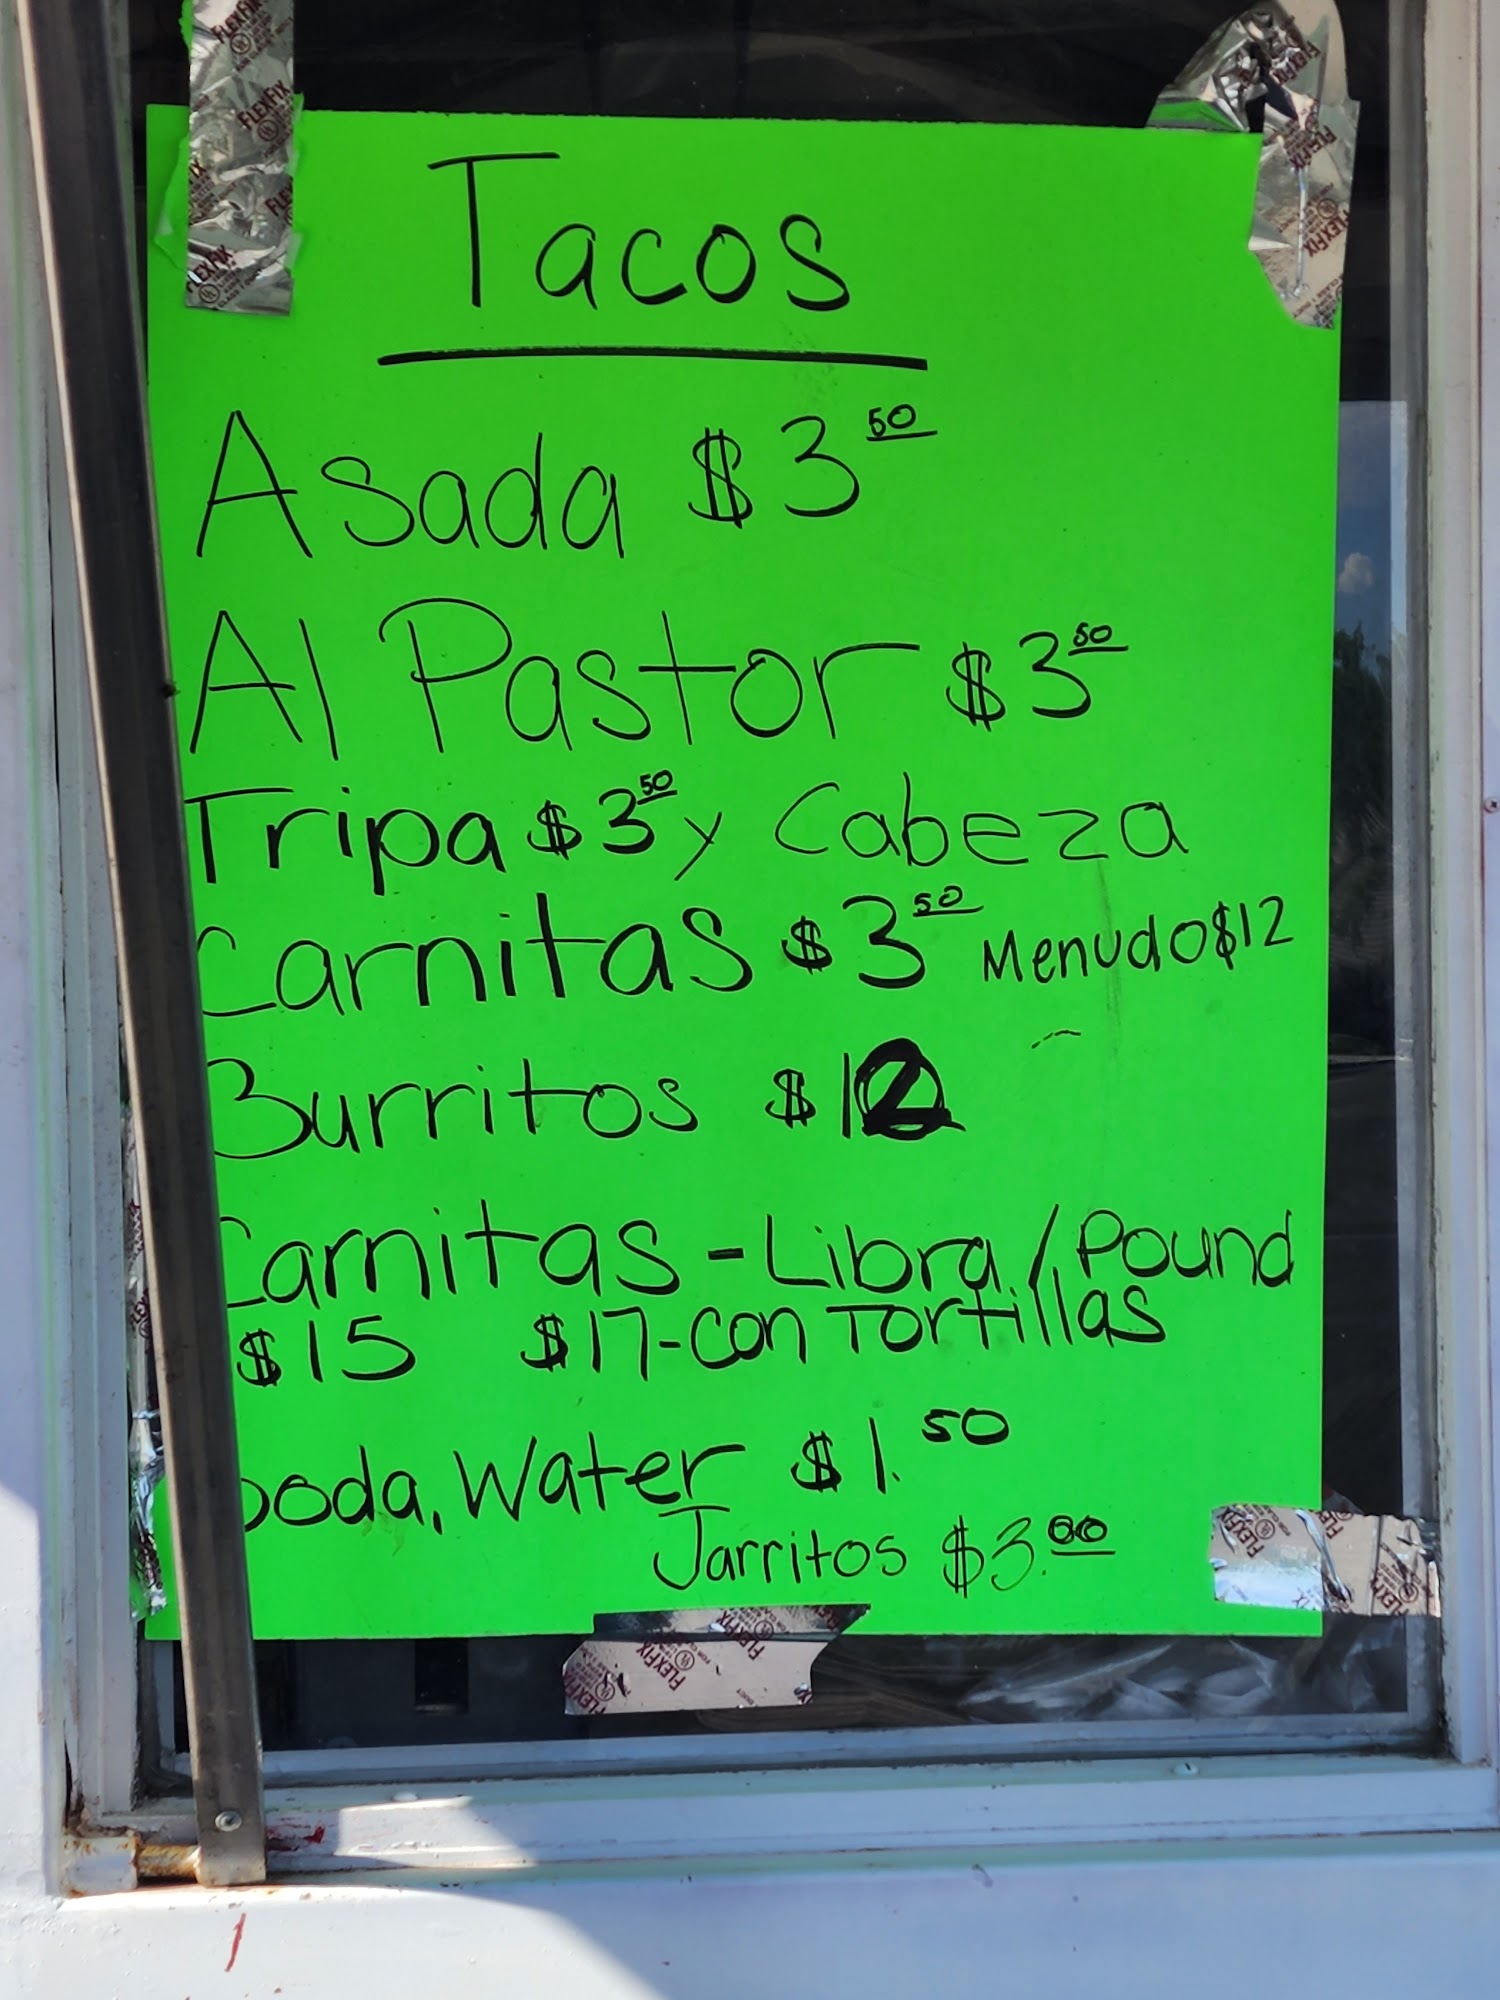 Tacos
Asada $3 50
Al Pastor $3 50
Tripa $3 50 y Cabeza
Carnitas $3 50 Menudo $12
Burritos $12
Carnitas - Libra / Pound
$15 $17-con Tortillas
Soda, Water $1.50
Jarritos $3.00
FLEXFIX
FLEXFIX
FLEXFIX